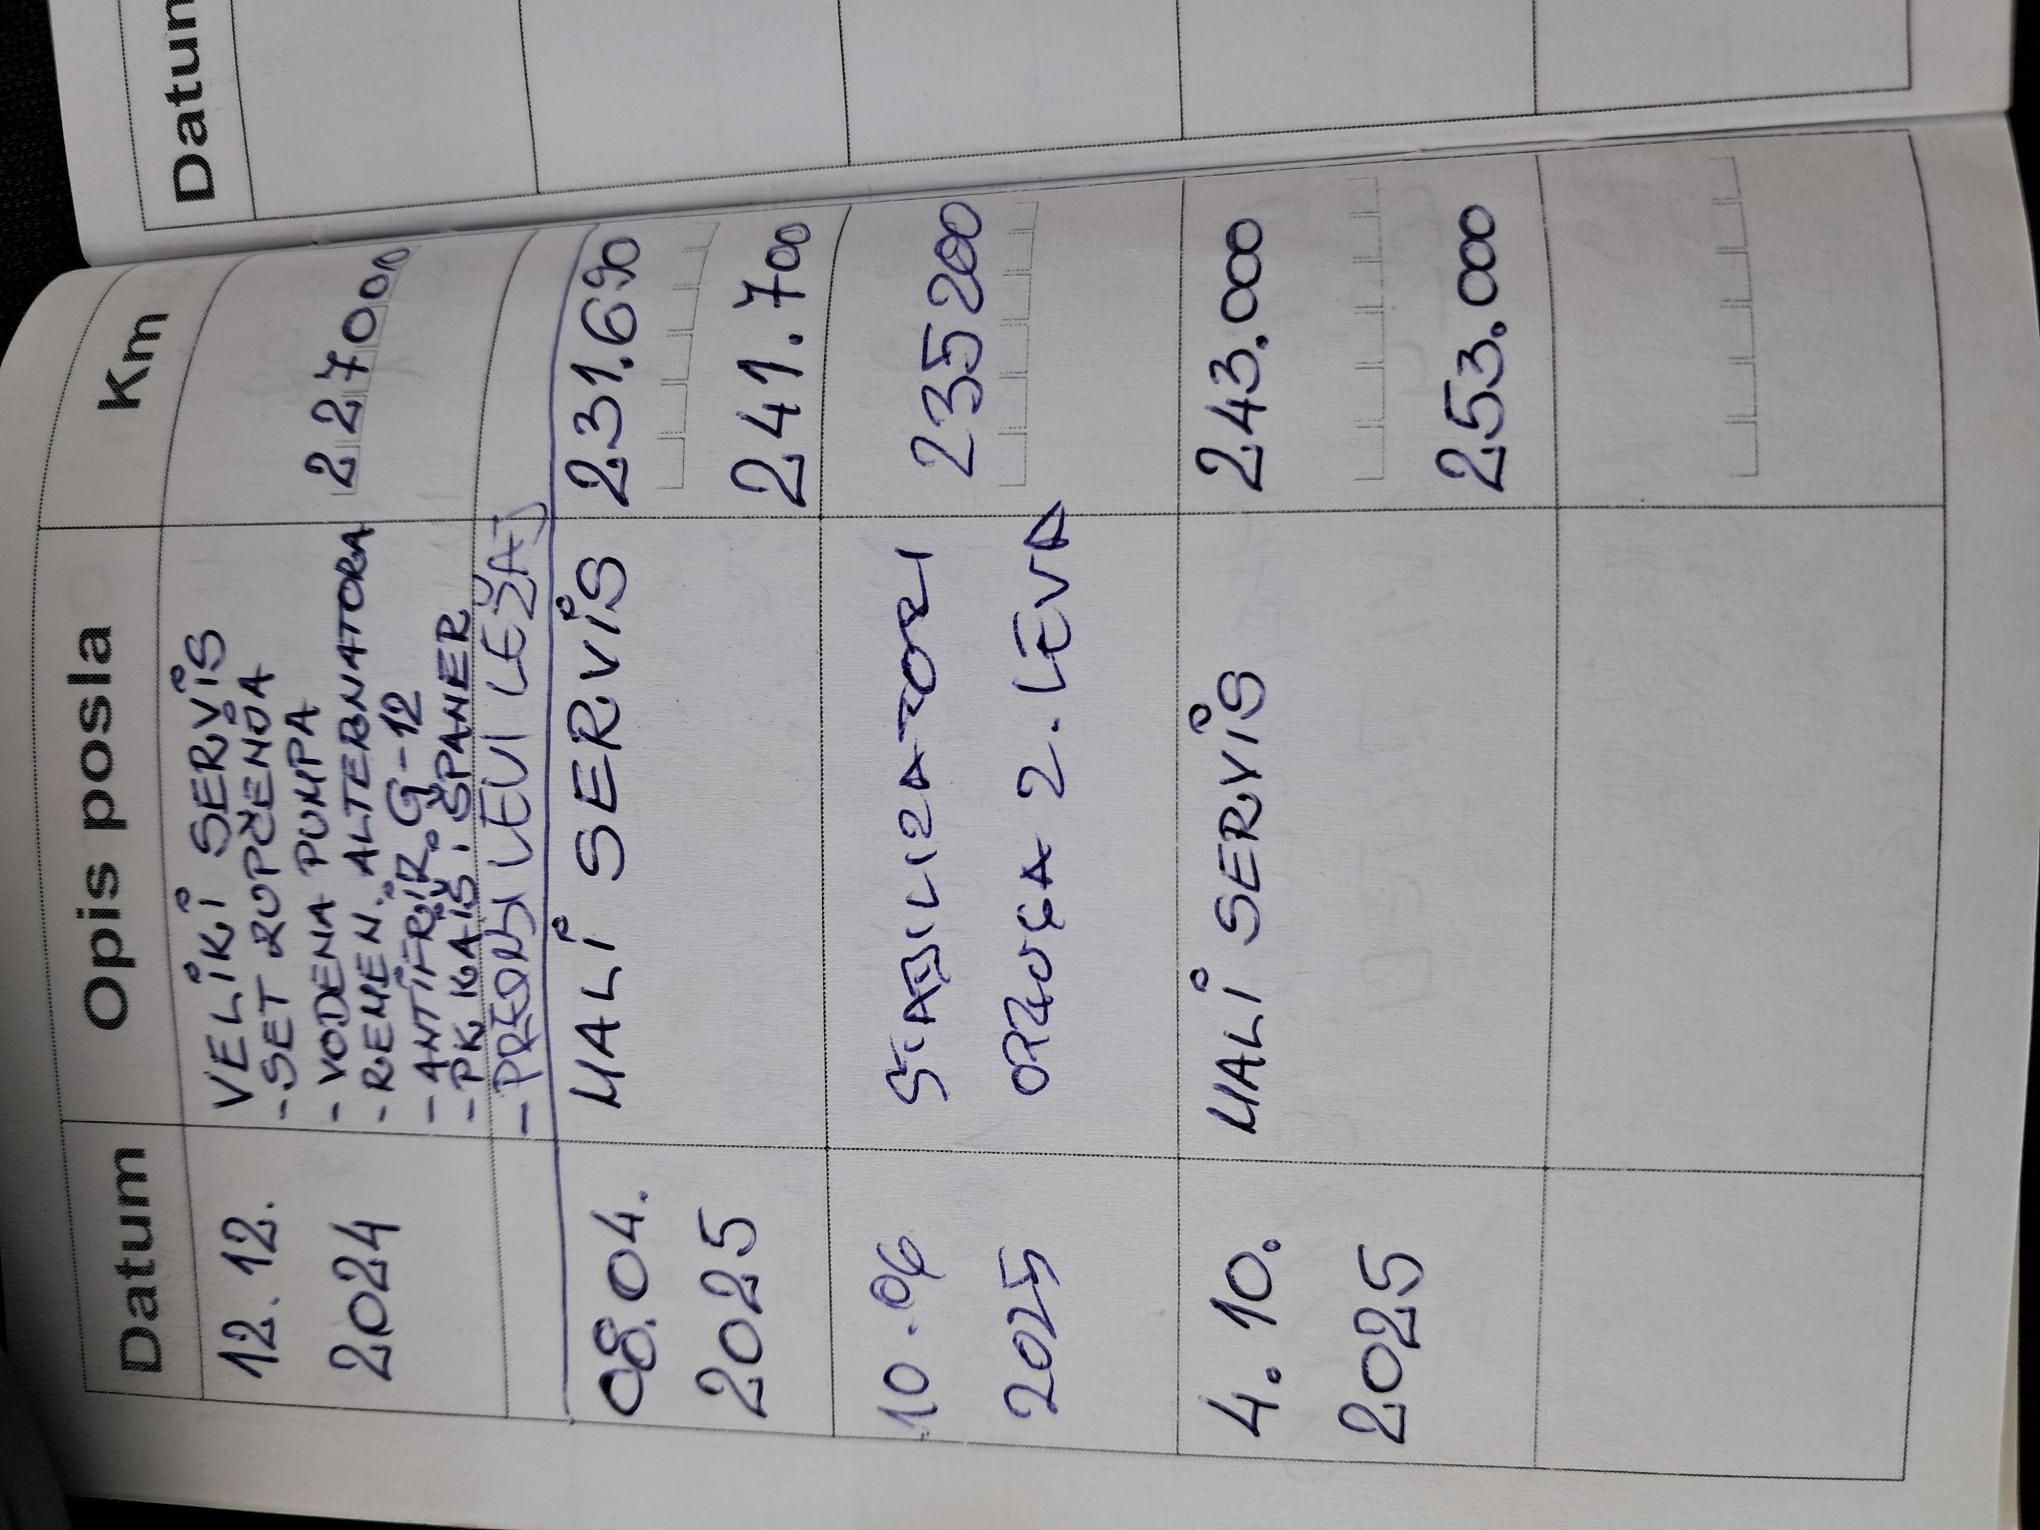 Datum
Opis posla
Km
12.12.
2024
VELiKi SERViS
- SET ZUPČENJA
- VODENA PUMPA
- REMEN. ALTERNATORA
- ANTiFRiZ G-12
- PK KAiŠ i ŠPANER
- PREDNJI LEVI LEŽAJ
227000
08.04.
2025
MALi SERViS
231.690
241.700
10.06
2025
STABILIZATORI
2. LEVA
235200
4.10.
2025
MALi SERViS
243.000
253.000
Datum